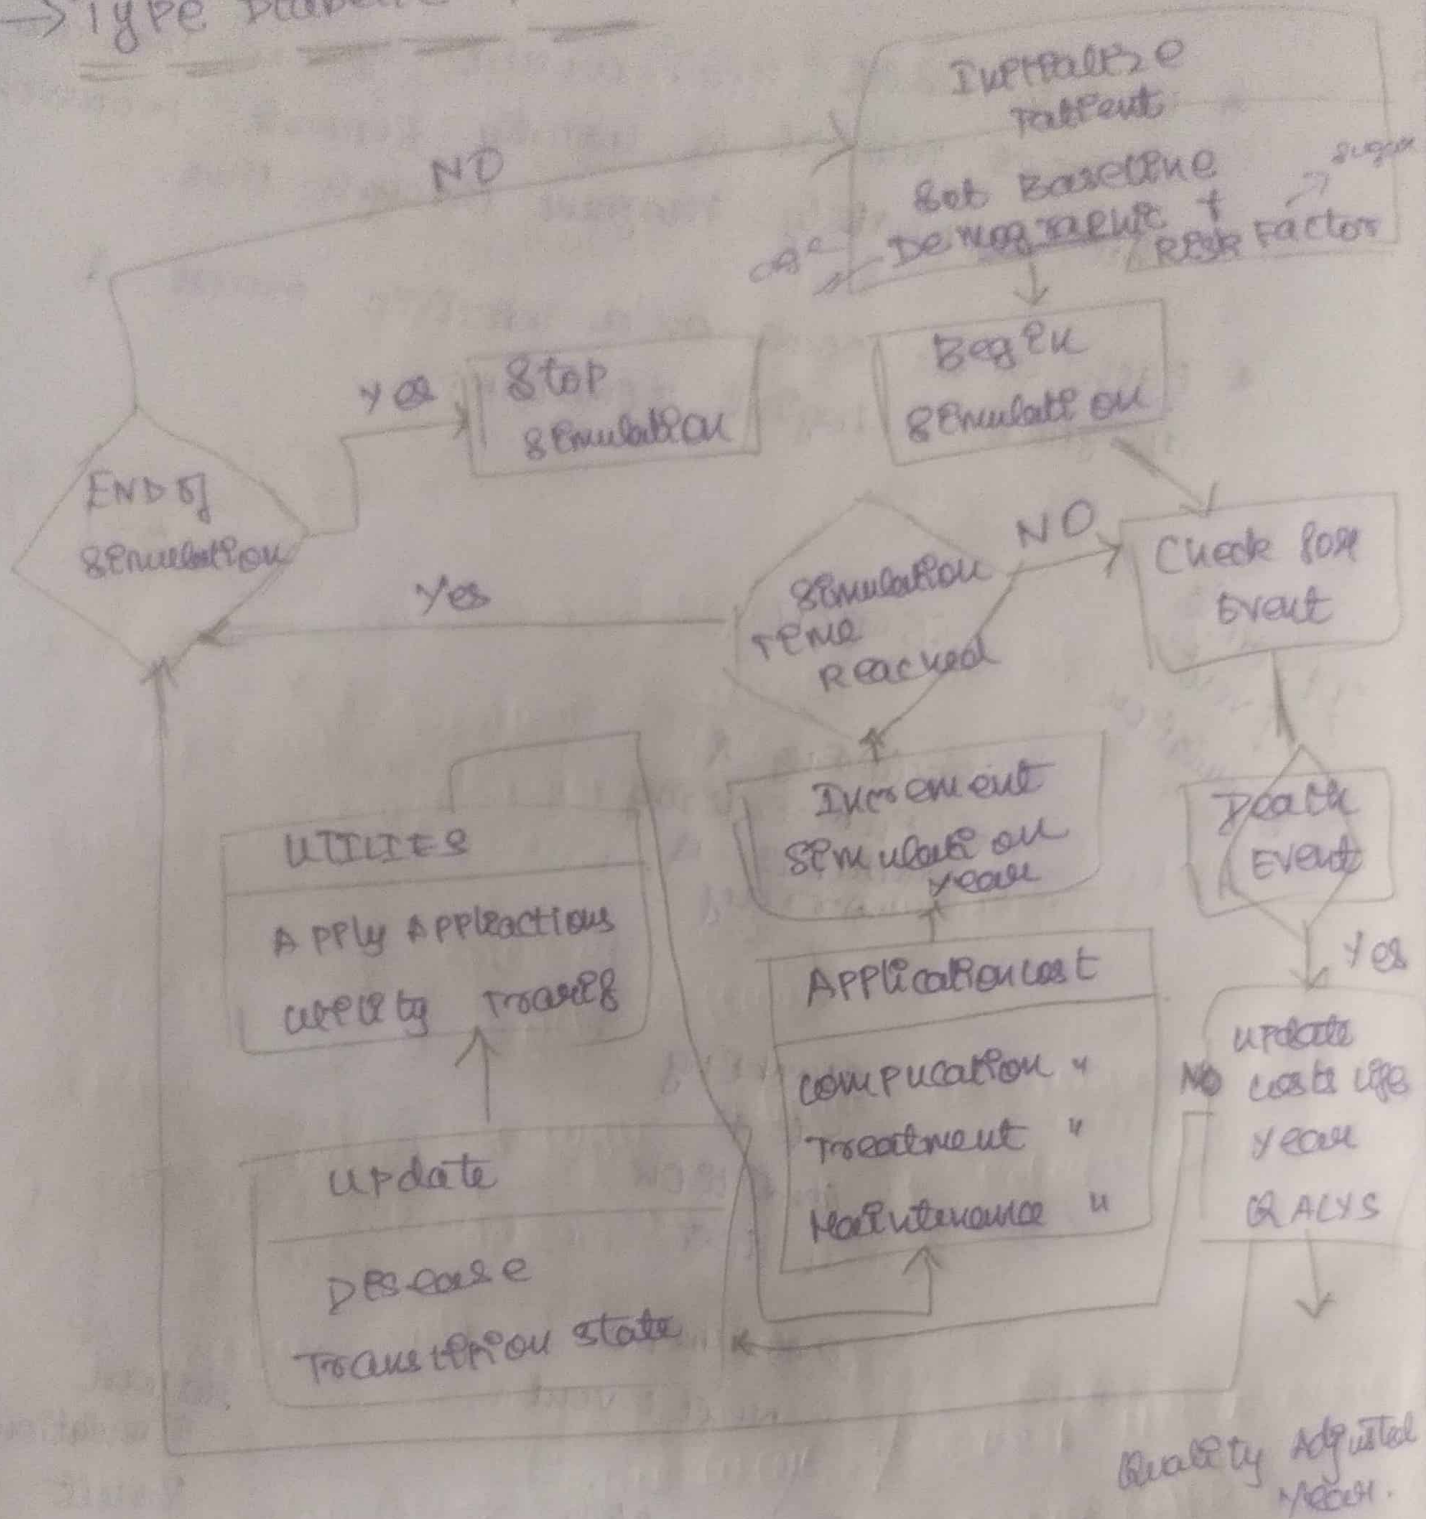 → Type Diabetic
Initialize
Patient
Set Baseline
Demographic +
Risk Factor
sugar
age
NO
Begin
Simulation
Yes
Stop
Simulation
END of
Simulation
Yes
Simulation
Time
Reached
NO
Check for
Event
Death
Event
Yes
Increment
Simulation
Year
UTILIES
Apply Appleactions
Utility
Application cost
Complication "
Treatment "
Maintenance "
NO
Update
Costs life
Year
QALYS
Update
Disease
Transition State
Quality Adjusted
Year.